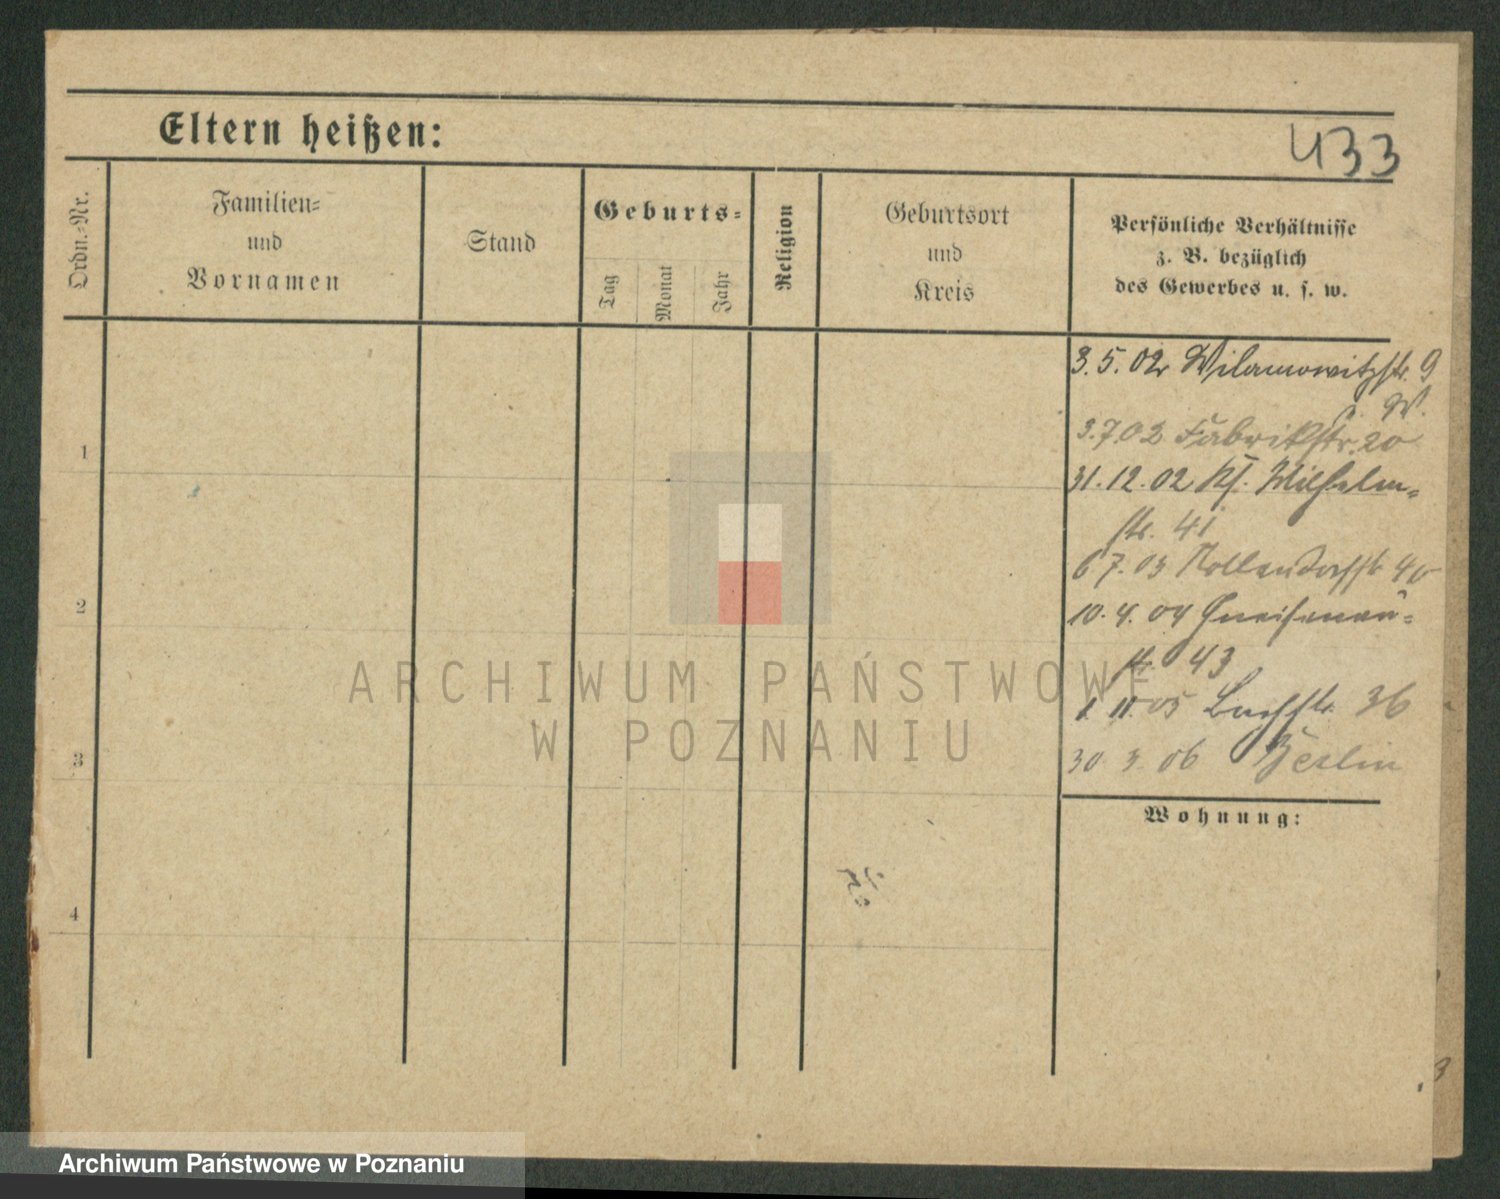 Eltern heißen:
433
Ordn.-Nr.
Familien-
und
Vornamen
Stand
Geburts-
Tag
Monat
Jahr
Religion
Geburtsort
und
Kreis
Persönliche Verhältnisse
z. B. bezüglich
des Gewerbes u. s. w.
3.5.02 Wilamowitzstr. 9
W.
3.7.02 Fabrikstr. 20
31.12.02 Kl. Wilhelm-
str. 41
6 7. 03 Nollendorfstr 40
10. 4. 04 Gneisenau-
str. 43
1. 11. 05 Bachstr. 36
30 3. 06 Berlin
Wohnung:
1
2
3
4
ARCHIWUM PAŃSTWOWE
W POZNANIU
Archiwum Państwowe w Poznaniu